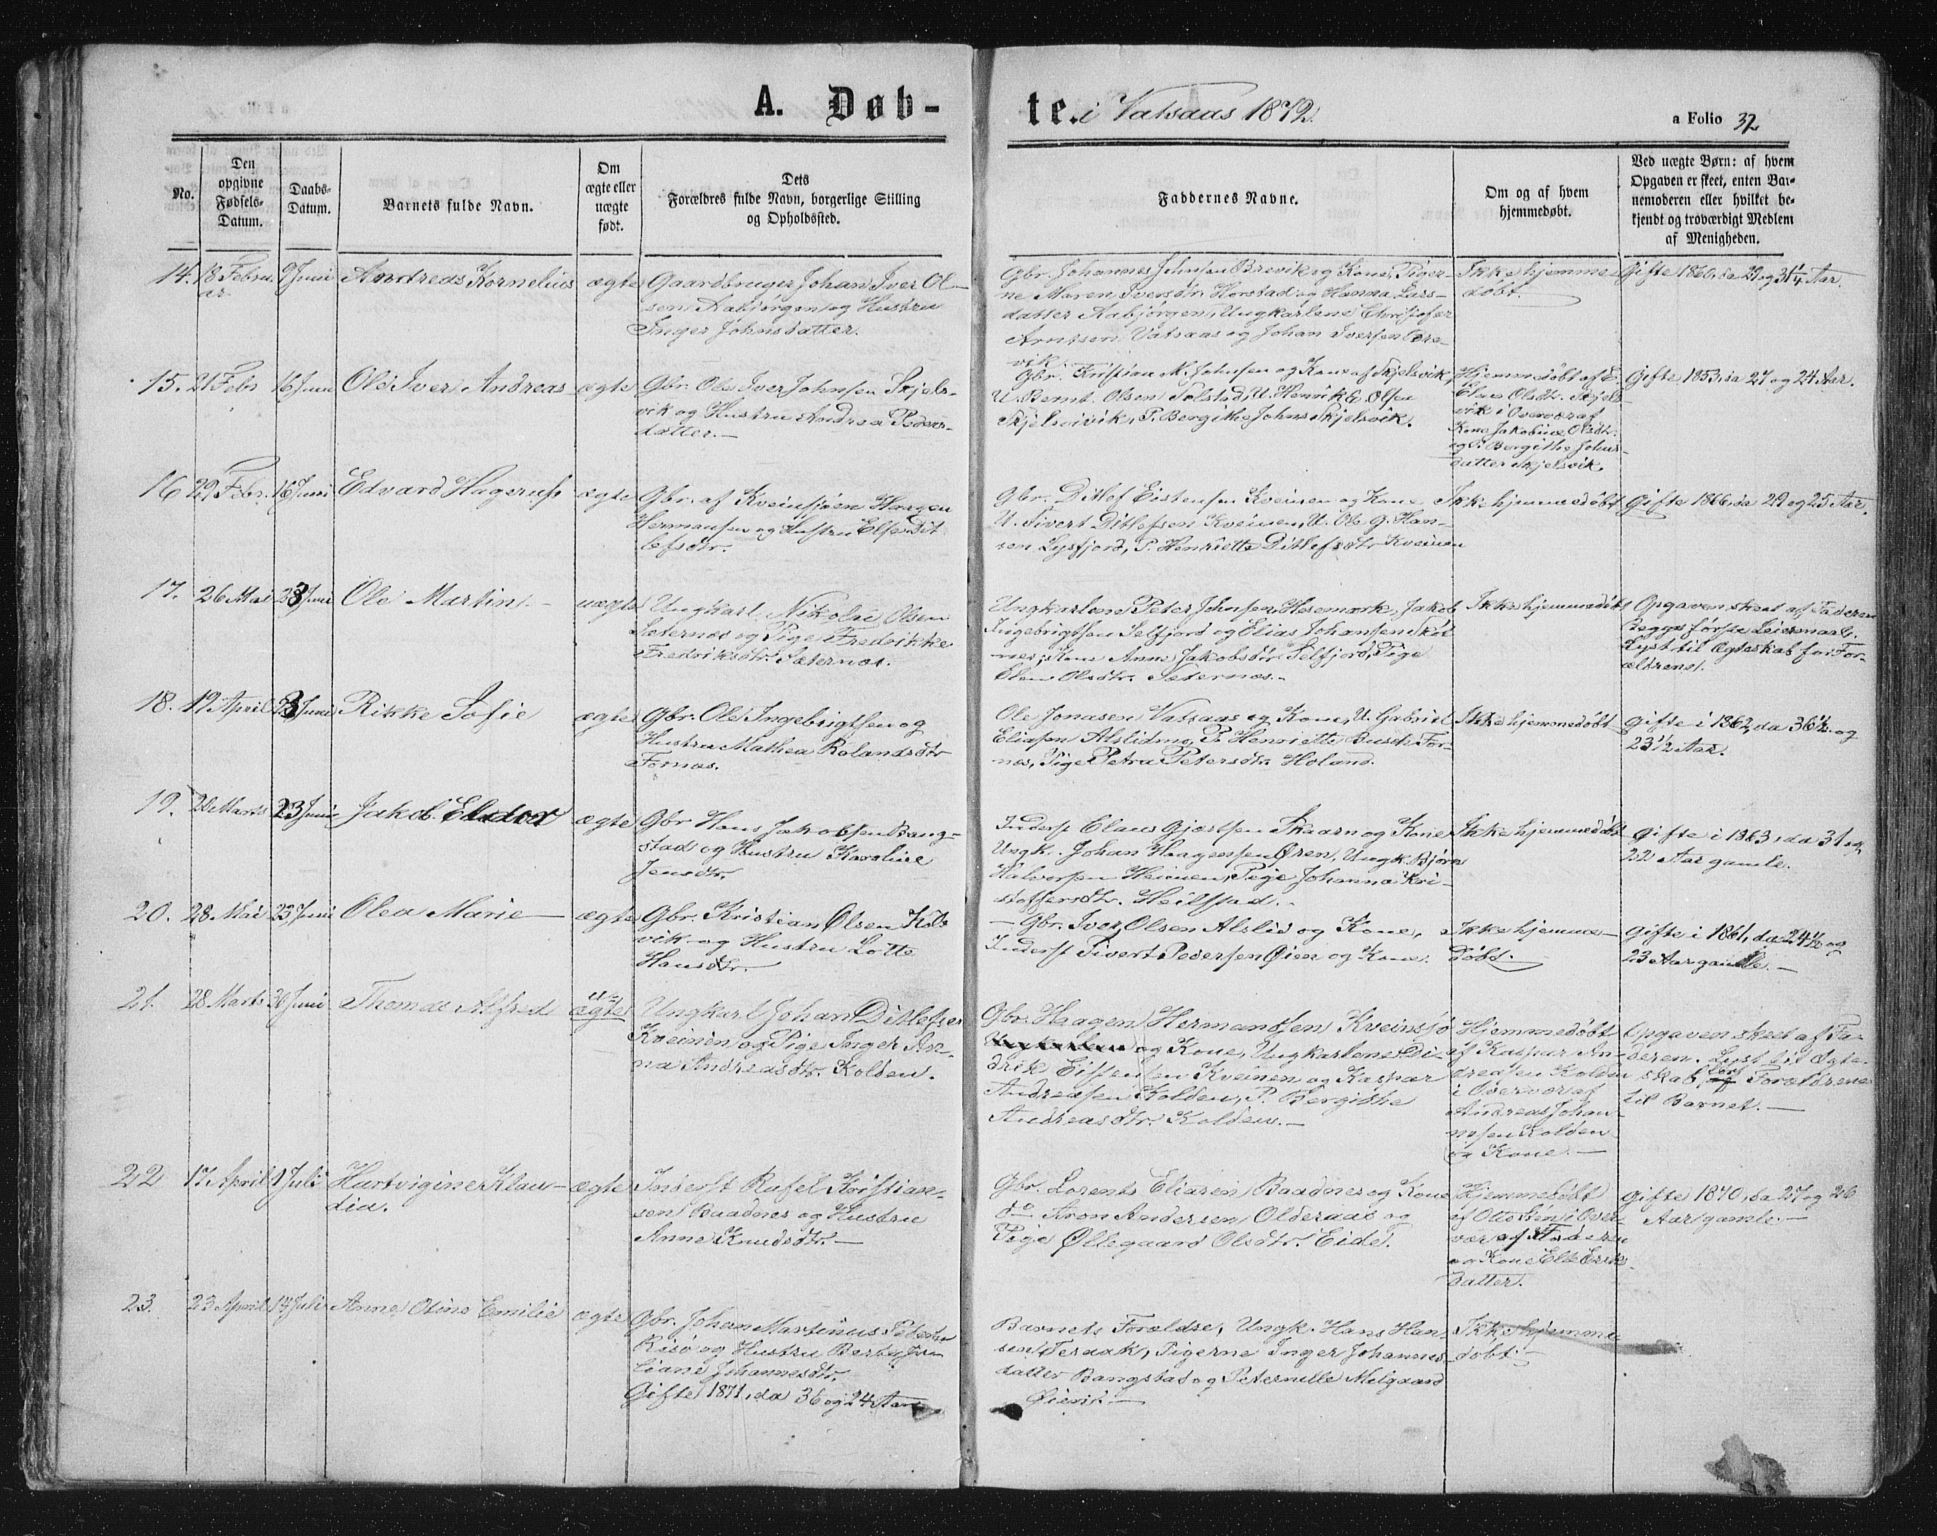 A. Døb-
te. i Vatsaas 1872.
a Folio 32
No.
Den opgivne Fødsels-Datum.
Daabs-Datum.
Barnets fulde Navn.
Om ægte eller uægte født.
Dets Forældres fulde Navn, borgerlige Stilling og Opholdssted.
Faddernes Navne.
Om og af hvem hjemmedøbt.
Ved uægte Børn: af hvem Opgaven er skeet, enten Barnemoderen eller hvilket bekjendt og troværdigt Medlem af Menigheden.
14. 18 Febru
ar
9 Juni
Andreas Kornelius
ægte
Gaardbruger Johan Iver Ol-
sen Aabjørgen og Hustru
Inger Johnsdatter.
Gbr. Johannes Johnsen Brevik og Kone, Piger-
ne Maren Iversdtr. Horstad og Hanna Lars-
datter Aabjørgen, Ungkarlene Christofer
Arntsen Vatsaas og Johan Iversen Bre-
vik
Ikke hjemme-
døbt.
Gifte 1860, da 29 og 31 1/4 Aar.
15. 21 Febr
16 Juni
Ole Iver Andreas
ægte
Gbr. Ole Iver Johnsen Skjels-
vik og Hustru Andrea Peders-
datter.
Gbr. Kristian M. Johnsen og Kone af Skjelsvik,
U. Bernt Olsen Solstad, U. Henrik E. Olsen
Skjelsvik, P. Bergithe Johns. Skjelsvik.
Hjemmedøbt af E.
Elen Olsdtr. Skjels-
vik i Overvær af
Kone Jakobine Olsdtr.
og P. Bergithe Johns-
datter Skjelsvik.
Gifte 1853, da 27 og 24 Aar.
16 29 Febr.
16 Juni
Edvard Hagerup
ægte
Gbr. af Kveinsjøen Haagen
Hermansen og Hustru Else Dit
lefsdtr.
Gbr. Ditlef Eistensen Kveinen og Kone
U. Sivert Ditlefsen Kveinen, U. Ole G. Han-
sen Lysfjord, P. Henriette Ditlefsdtr Kveinen
Ikke hjemmedøbt
Gifte 1866, da 29 og 25 Aar.
17. 26 Mai
23 Juni
Ole Martin.
uægte
Ungkarl Nikolai Olsen
Sæternes og Pige Fredrikke
Fredriksdtr. Sæternes.
Ungkarlene Peter Johnsen Hosemark, Jakob
Ingebrigtsen Selfjord og Elias Johansen Skar
nes, Kone Anne Jakobsdtr Selfjord, Pige
Elen Olsdtr. Sæternes.
Ikke hjemmedøbt
Opgaven skeet af Faderen
Begges første Leiermaal.
Lyst til Ægteskab for For-
ældrene.
18. 19 April
23 Juni
Rikke Sofie
ægte
Gbr. Ole Ingebrigtsen og
Hustru Mathea Rolandsdtr
Fornes.
Ole Jonasen Vatsaas og Kone, U. Gabriel
Eliasen Alslidmo, P. Henriette Busch For-
nes, Pige Petra Petersdtr. Holand.
Ikke hjemmedøbt
Gifte i 1862, da 36 1/2 og
23 1/2 Aar.
19. 20 Marts
23 Juni
Jakob
ægte
Gbr Hans Jakobsen Bang-
stad og Hustru Karoline
Jensdtr
Inderst Claus Gjertsen Skaarn og Kone
Ungk. Johan Haagensen Øren, Ungk. Bjørn
Halvorsen Heinen, Pige Johanna Kri-
stoffersdtr. Heilstad.
Ikke hjemmedøbt
Gifte i 1863, da 31 og
22 Aar gamle.
20. 28 Mai
23 Juni
Olea Marie
ægte
Gbr. Kristian Olsen Kols
vik og Hustru Lotte
Hansdtr.
Gbr. Iver Olsen Alslid og Kone,
Inderst Sivert Pedersen Øien og Kone.
Ikke hjemme-
døbt.
Gifte i 1861, da 24 1/2 og
23 Aar gamle.
21. 28 Marts
26 Juni
Thomas Alfred
u-
ægte
Ungkarl Johan Ditlefsen
Kveinen og Pige Inger An-
na Andreasdtr. Kolden.
Gbr. Haagen Hermansen Kveinsjø
og Kone, Ungkarlene Di-
drik Eistensen Kveinen og Kaspar
Andreasen Kolden, P. Bergithe
Andreasdtr. Kolden.
Hjemmedøbt
af Kaspar An-
dreasen Kolden
i Overvær af
Andreas Johan-
nesen Kolden
og Kone.
Opgaven skeet af Fa-
deren. Lyst til Ægte-
skab for Forældrene
til Barnet.
22 17 April
1 Juli
Hartvigine Klau-
dia.
ægte
Inderst Rafel Kristian-
sen Baadnes og Hustru
Anne Knudsdtr.
Gbr. Lorents Eliasen Baadnes og Kone
do Aron Andersen Olderaas og
Pige Øllegaard Olsdtr. Eide.
Hjemmedøbt
af Otto Sén i Over-
vær af Faderen
og Kone Else Erik
datter.
Gifte 1870, da 27 og 26
Aar gamle.
23. 23 April
14 Juli
Anne Oline Emilie
ægte
Gbr. Johan Martinus Peterse
Risø og Hustru Berta Ju-
liane Johannesdtr.
Gifte 1871, da 36 og 24 Aar
Barnets Forældre, Ungk. Hans Han
sen Teraak, Pigerne Inger Johannes
datter Bangstad og Peternelle Melgaard
Øievik
Ikke hjemme
døbt.